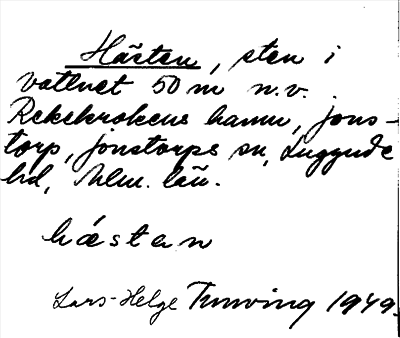 Hästen, sten i
vattnet 50 m n.v.
Rekekrokens hamn, Jons-
torp, Jonstorps sn, Luggude
hd, Mlm. län.
hǽstan
Lars-Helge Tunving 1949.